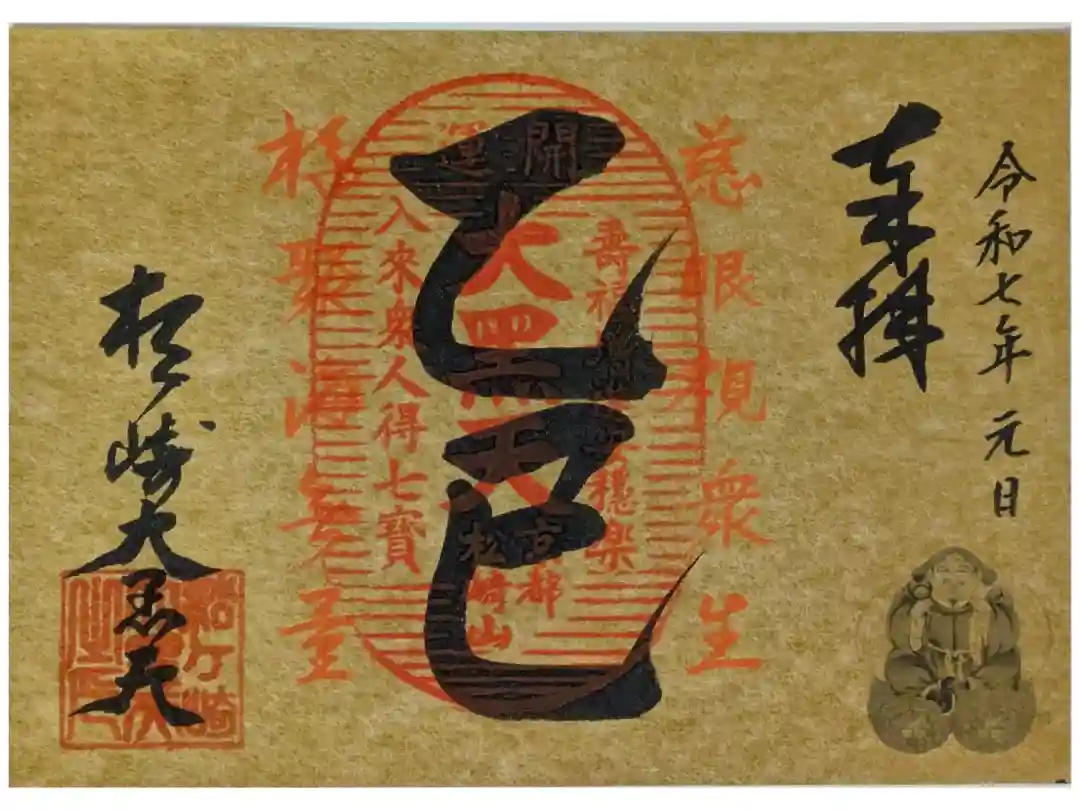 令和七年 元日
奉拝
慈眼視衆生
壽福
穏楽
開運
大黒天
乙巳
京都
松崎山
入来衆人得七寶
福聚海無量
松ヶ崎大黒天